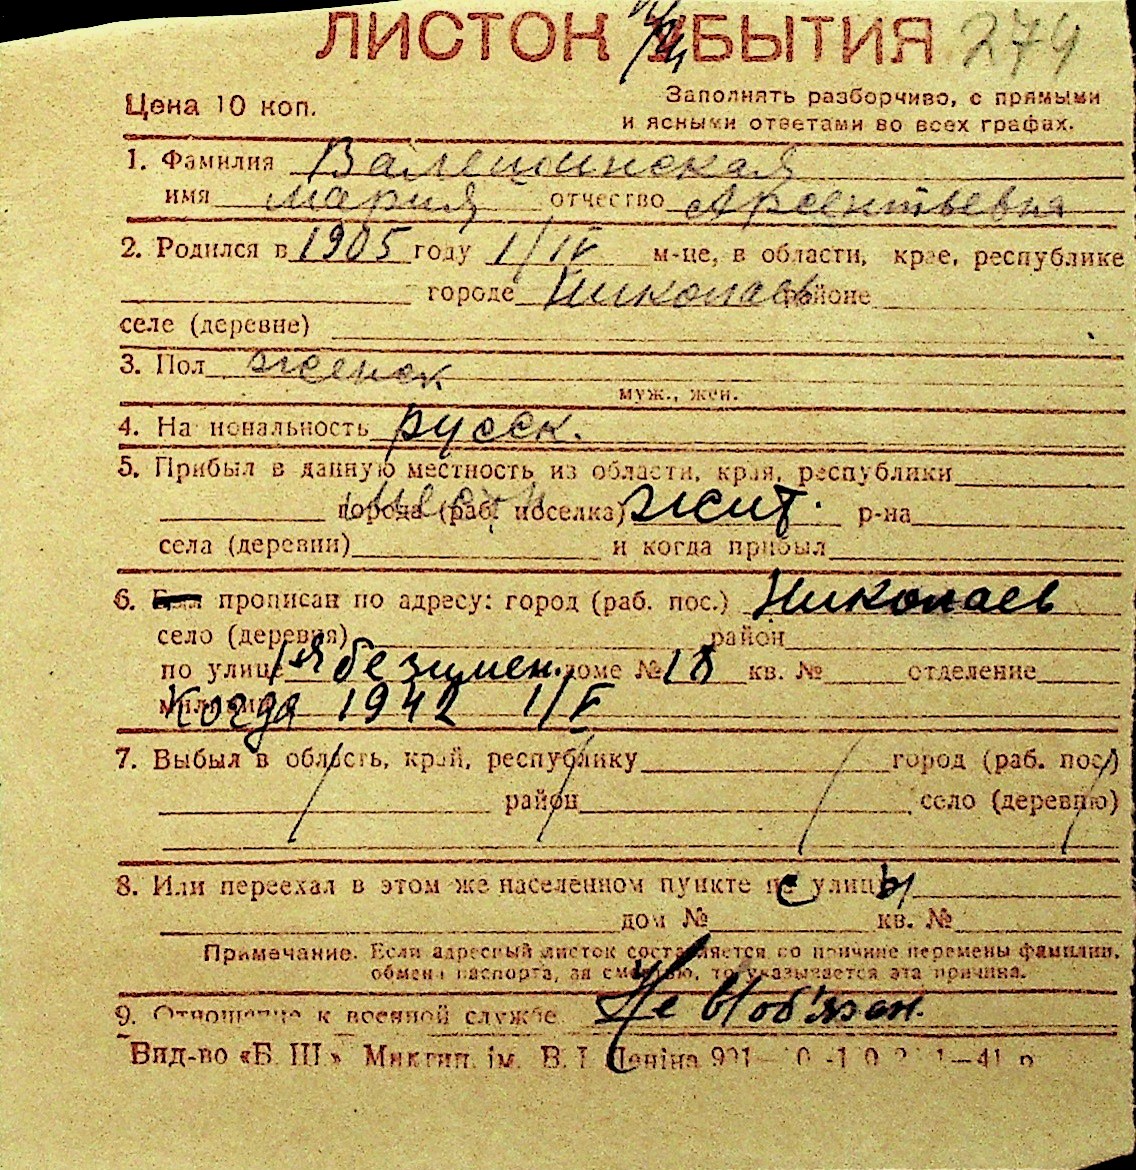 ЛИСТОК УБЫТИЯ 274
Цена 10 коп. Заполнять разборчиво, с прямыми
и ясными ответами во всех графах.
1. Фамилия Валешинская
имя Мария отчество Арсентьевна
2. Родился в 1905 году 1/IV м-це, в области, крае, республике
городе Николаев районе
селе (деревне)
3. Пол женск
муж., жен.
4. Национальность русск.
5. Прибыл в данную местность из области, края, республики
города (раб. поселка) жит. р-на
села (деревни) и когда прибыл
6. прописан по адресу: город (раб. пос.) Николаев
село (деревня) район
по улице доме № 18 кв. № отделение
милиции Когда 1942 1/V
7. Выбыл в область, край, республику город (раб. пос.)
район село (деревню)
8. Или переехал в этом же населенном пункте с улицы
дом № кв. №
Примечание. Если адресный листок составляется по причине перемены фамилии,
обмена паспорта, за смертью, то указывается эта причина.
9. Отношение к военной службе Не в/об'язан.
Вид-во «Б. Ш.» Микгип. ім. В. І. Леніна